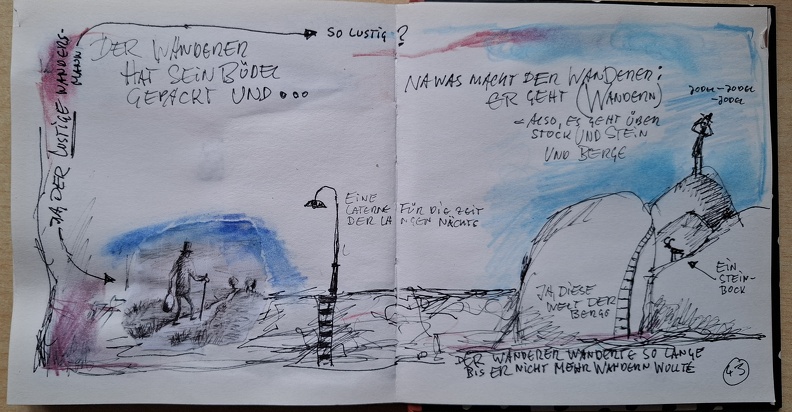 JA DER LUSTIGE WANDERS-
MANN
SO LUSTIG?
DER WANDERER
HAT SEIN BÜDEL
GEPACKT UND...
EINE
LATERNE FÜR DIE ZEIT
DER LANGEN NÄCHTE
NA WAS MACHT DER WANDERER:
ER GEHT (WANDERN)
ALSO, ES GEHT ÜBER
STOCK UND STEIN
UND BERGE
JODEL-JODEL
-JODEL
EIN
STEIN-
BOCK
JA, DIESE
WELT DER
BERGE
DER WANDERER WANDERTE SO LANGE
BIS ER NICHT MEHR WANDERN WOLLTE
43